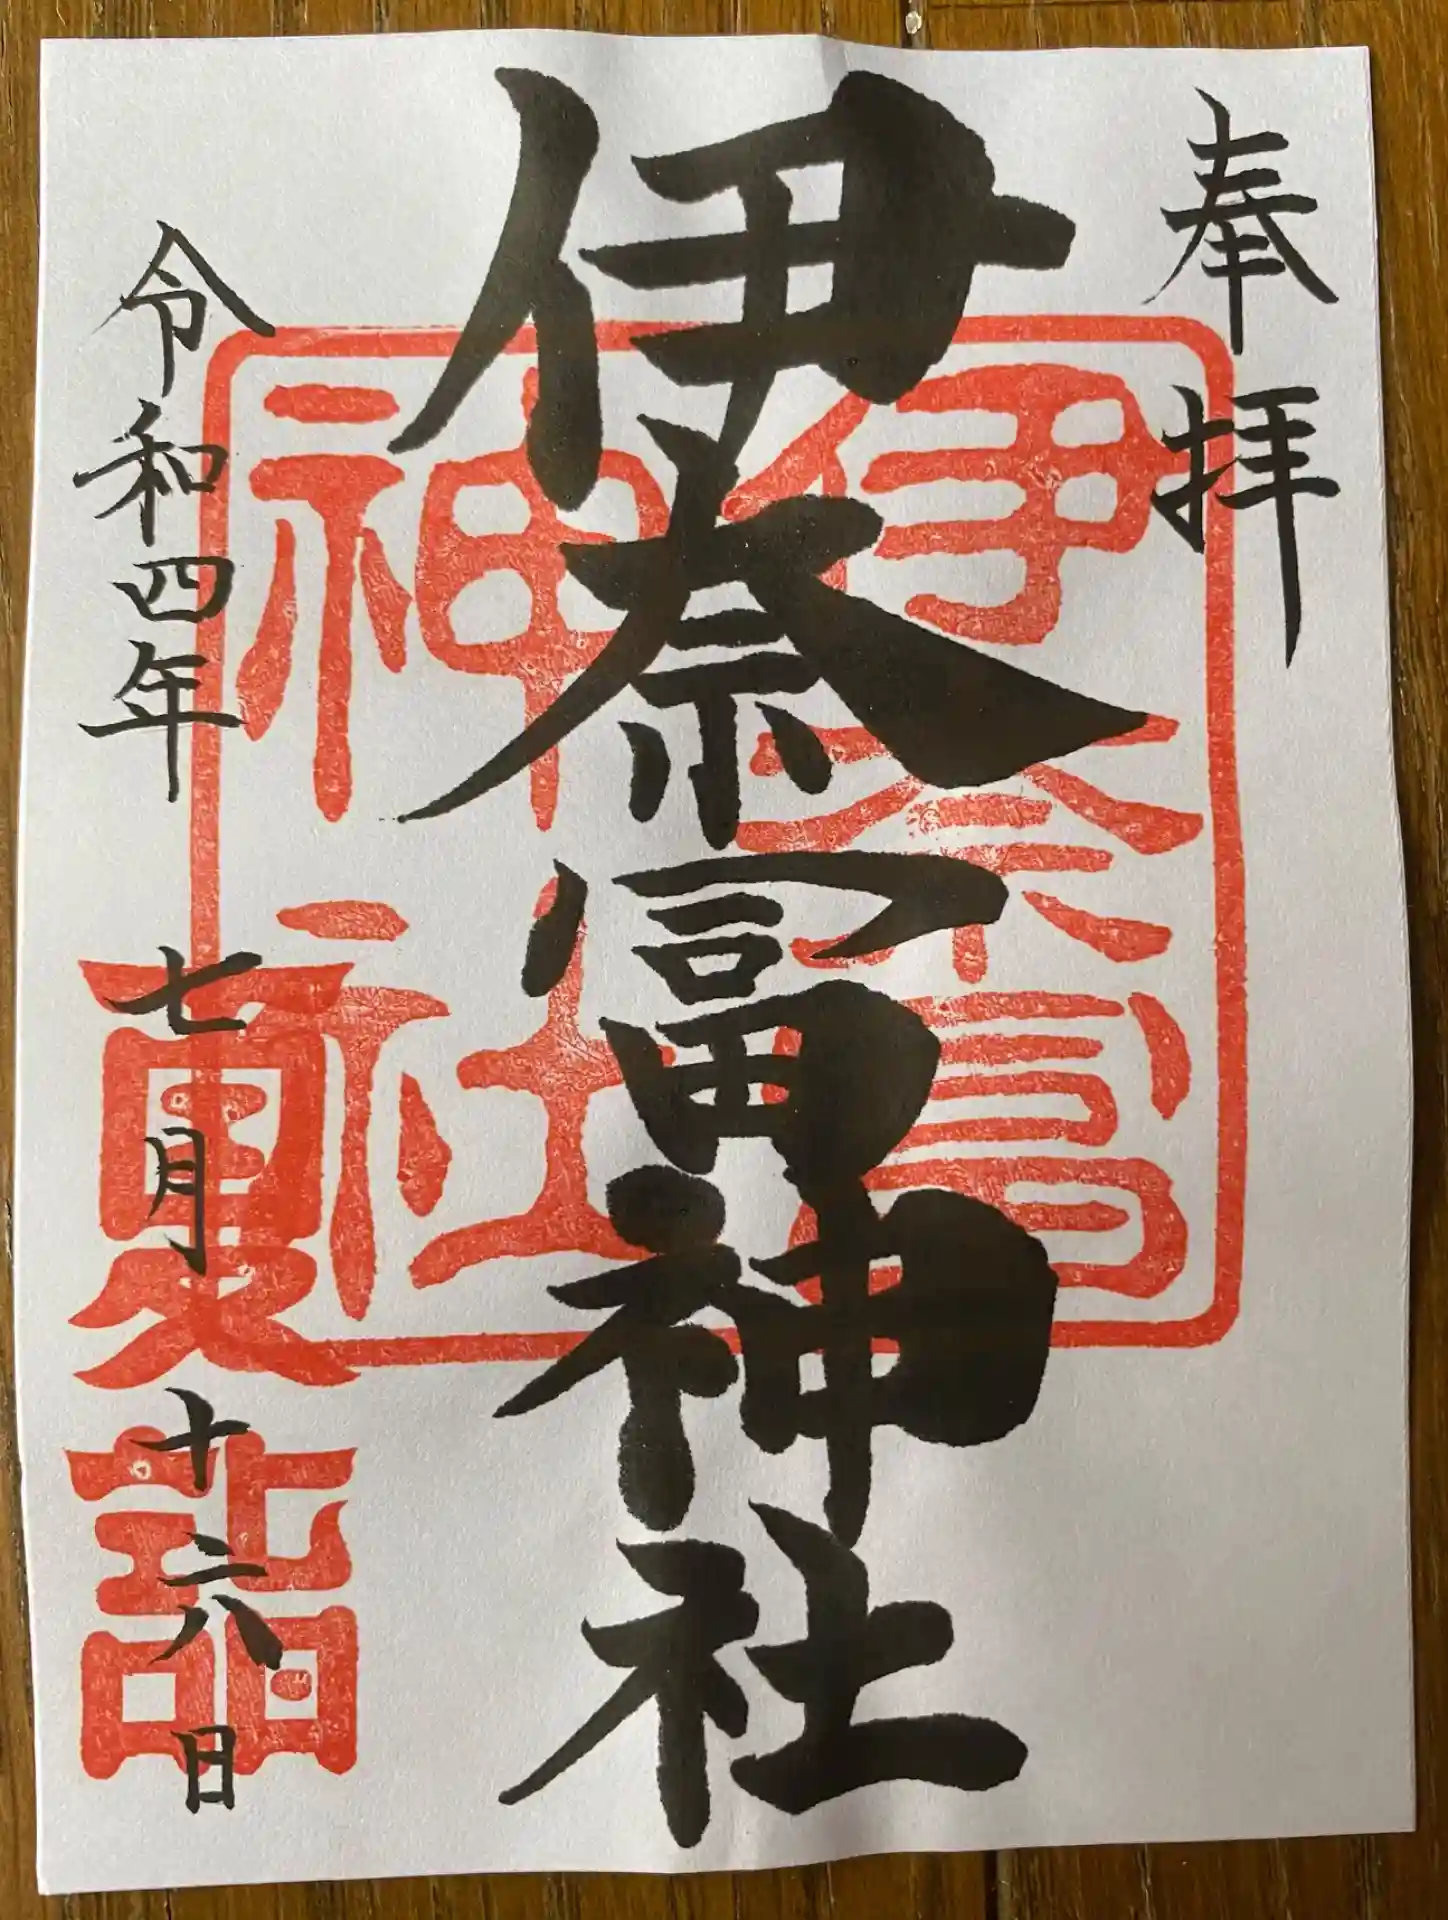 奉拝
伊奈冨神社
伊奈冨
神社
令和四年七月十六日
夏詣